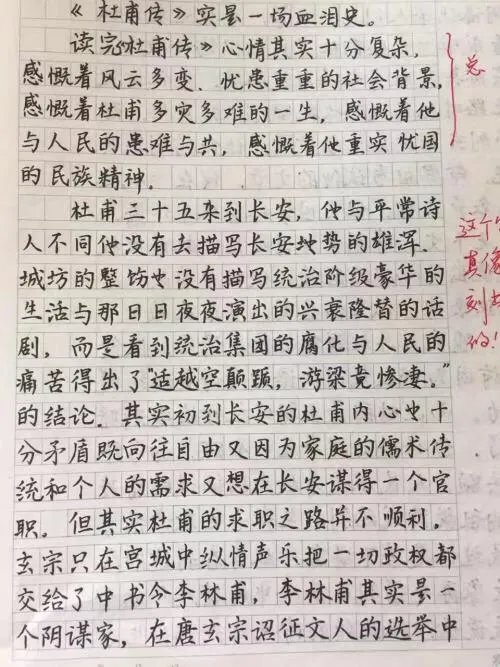 《杜甫传》实是一场血泪史。
读完《杜甫传》心情其实十分复杂,
感慨着风云多变、忧患重重的社会背景,
感慨着杜甫多灾多难的一生,感慨着他
与人民的患难与共,感慨着他重实忧国
的民族精神.
杜甫三十五来到长安,他与平常诗
人不同他没有去描写长安地势的雄浑.
城坊的整饬也没有描写统治阶级豪华的
生活与那日日夜夜演出的兴衰隆替的话
剧,而是看到统治集团的腐化与人民的
痛苦得出了"适越空颠踬,游梁竟惨凄。"
的结论.其实初到长安的杜甫内心中十
分矛盾既向往自由又因为家庭的儒术传
统和个人的需求又想在长安谋得一个官
职.但其实杜甫的求职之路并不顺利,
玄宗只在宫城中纵情声乐把一切政权都
交给了中书令李林甫,李林甫其实是一
个阴谋家,在唐玄宗诏征文人的选举中
总
这个
真像
刻
的!